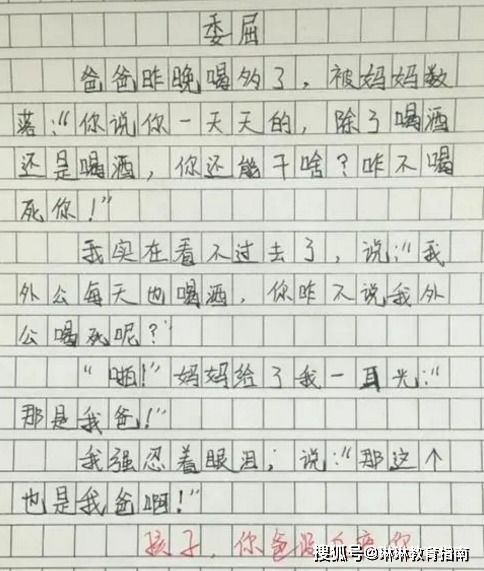 委屈
爸爸昨晚喝多了，被妈妈数
落：“你说你一天天的，除了喝酒
还是喝酒，你还能干啥？咋不喝
死你！”
我实在看不过去了，说：“我
外公每天也喝酒，你咋不说我外
公喝死呢？”
“啪！”妈妈给了我一耳光：“
那是我爸！”
我强忍着眼泪，说：“那这个
也是我爸啊！”
孩子，你爸没白疼你
搜狐号@琳琳教育指南